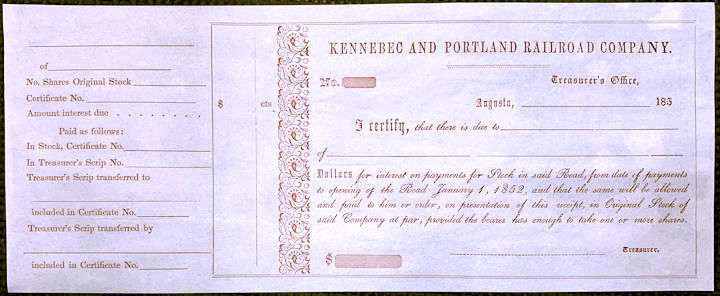 of
No. Shares Original Stock
Certificate No.
Amount interest due . . . . . . . .
Paid as follows:
In Stock, Certificate No.
In Treasurer's Scrip No.
Treasurer's Scrip transferred to
included in Certificate No.
Treasurer's Scrip transferred by
included in Certificate No.
$ cts.
KENNEBEC AND PORTLAND RAILROAD COMPANY.
No.
Treasurer's Office,
Augusta, 185
I certify, that there is due to
of
Dollars for interest on payments for Stock in said Road, from date of payments
to opening of the Road January 1, 1852, and that the same will be allowed
and paid to him or order, on presentation of this receipt, in Original Stock of
said Company at par, provided the bearer has enough to take one or more shares.
Treasurer.
$